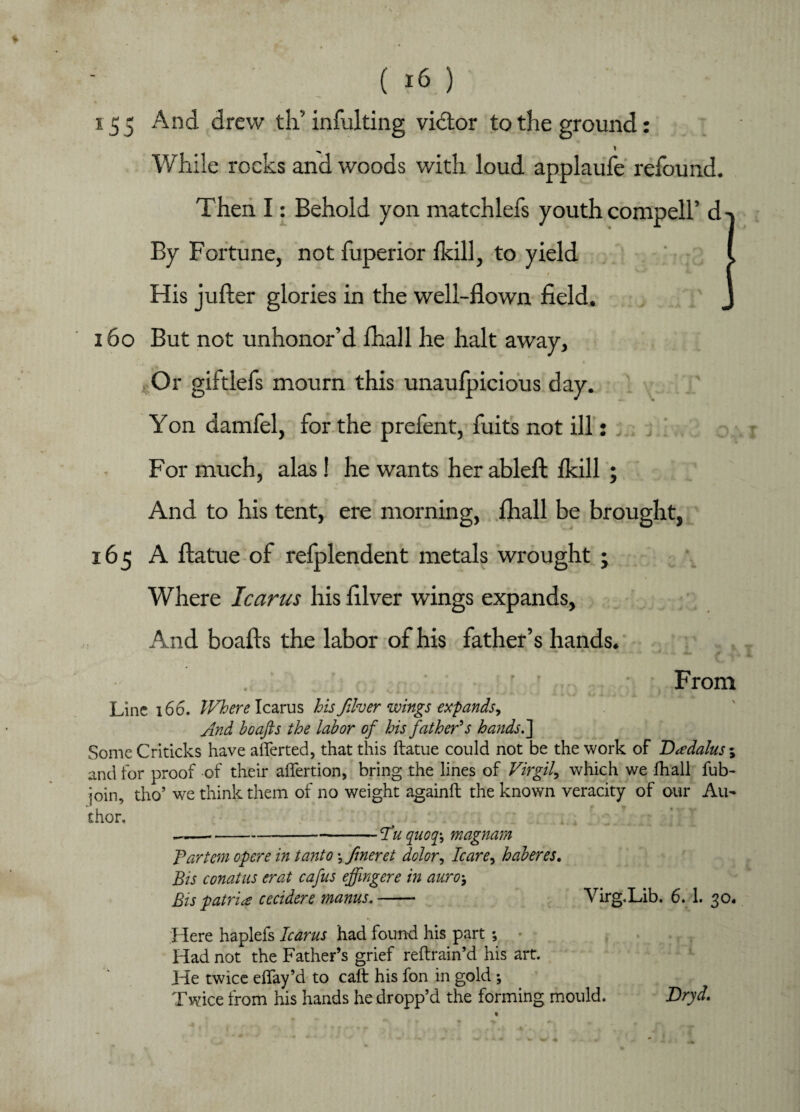 ( 16 )
155 And drew th' inſulting victor to the ground:
While rocks and woods with loud applauſe reſound.
Then I: Behold yon matchleſs youth compell'd
By Fortune, not ſuperior ſkill, to yield
His juſter glories in the well-flown field.
160 But not unhonor'd ſhall he halt away,
Or giftleſs mourn this unauſpicious day.
Yon damſel, for the preſent, ſuits not ill:
For much, alas! he wants her ableſt ſkill;
And to his tent, ere morning, ſhall be brought,
165 A ſtatue of reſplendent metals wrought;
Where Icarus his ſilver wings expands,
And boaſts the labor of his father's hands.
From
Line 166. Where Icarus his ſilver wings expands,
And boaſts the labor of his father's hands.]
Some Criticks have aſſerted, that this ſtatue could not be the work of Dædalus;
and for proof of their aſſertion, bring the lines of Virgil, which we ſhall ſub-
join, tho' we think them of no weight againſt the known veracity of our Au-
thor.
——————Tu quoq; magnam
Partem opere in tanto; ſineret dolor, Icare, haberes.
Bis conatus erat caſus effingere in auro;
Bis patriæ cecidere manus.—— Virg.Lib. 6. l. 30.
Here hapleſs Icarus had found his part;
Had not the Father's grief reſtrain'd his art.
He twice eſſay'd to caſt his ſon in gold;
Twice from his hands he dropp'd the forming mould. Dryd.